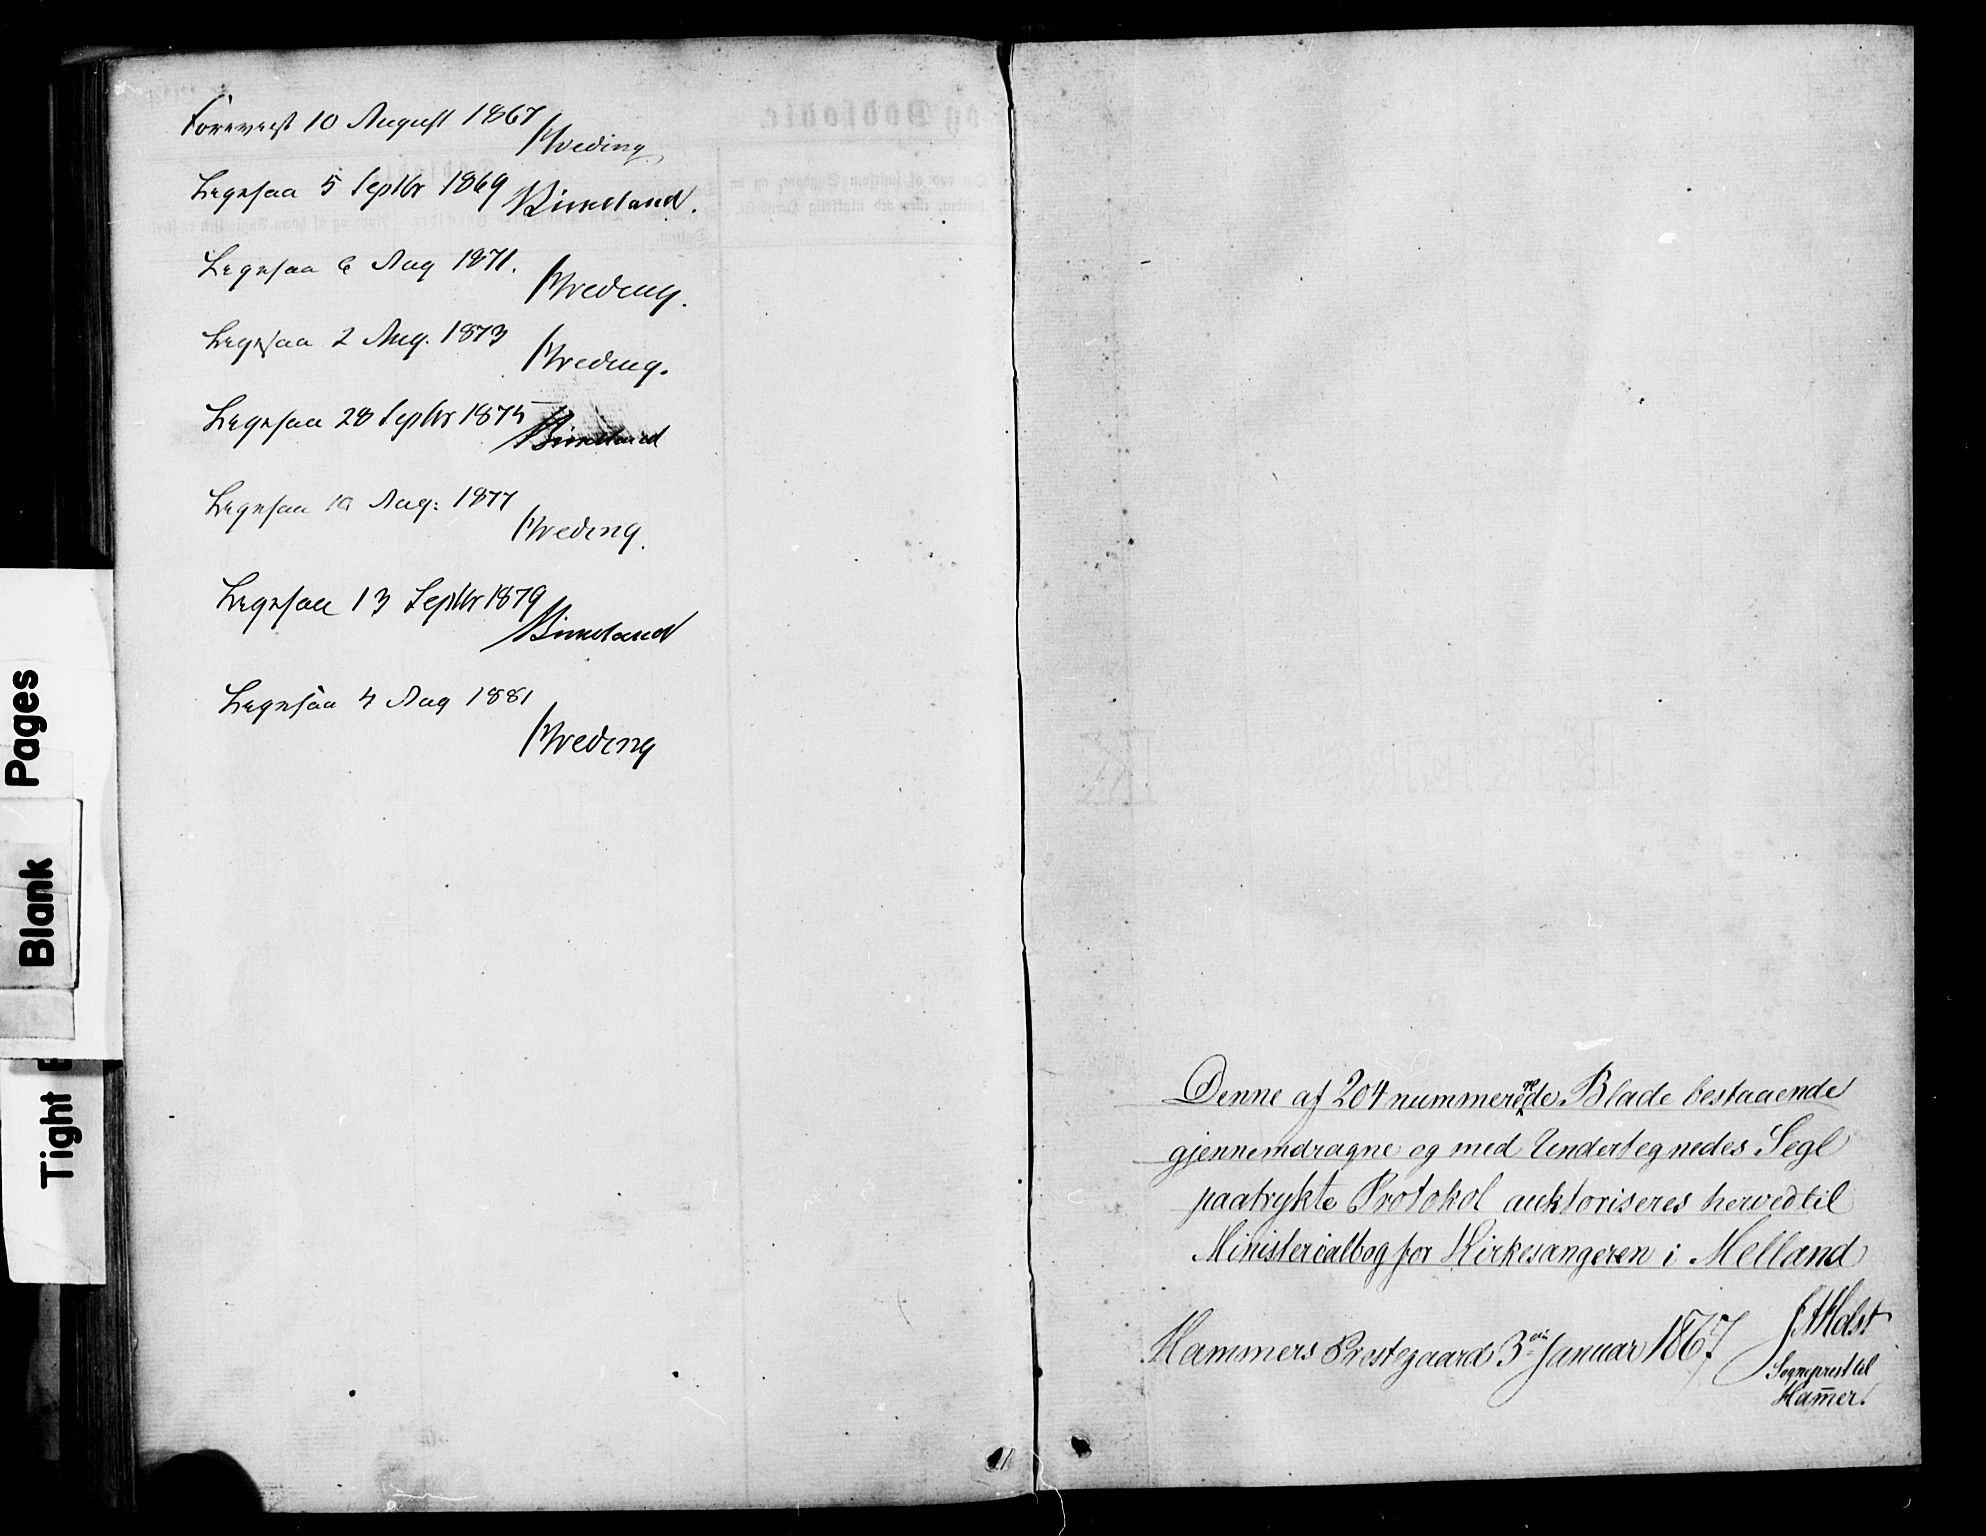 Forevist 10 August 1867
Hveding
Ligesaa 5 Septbr 1869 Birkeland.
Ligesaa 6 Aug 1871.
Hveding.
Ligesaa 2 Aug. 1873
Hveding.
Ligesaa 28 Septbr 1875
Birkeland
Ligesaa 10 Aug: 1877
Hveding.
Ligesaa 13 Septbr 1879
Birkeland
Ligesaa 4 Aug 1881
Hveding
Pages
Blank
Tight
Denne af 204 nummererede Blade bestaaende
gjennemdragne og med Undertegnedes Segl
paatrykte Protokol auktoriseres herved til
Ministerialbog for Kirkesangeren i Melland
Hammers Prestegaard 3die Januar 1867
Holst
Sogneprest til
Ham̅er.